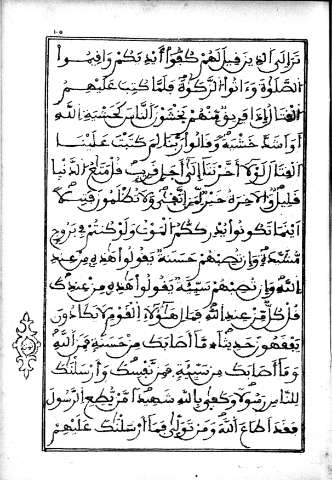 ١٠٥
تر إلى الذين قيل لهم كفوا أيديكم وأقيموا
الصلوة وءاتوا الزكوة فلما كتب عليهم
القتال إذا فريق منهم يخشون الناس كخشية الله
أو أشد خشية وقالوا ربنا لم كتبت علينا
القتال لولا أخرتنا إلى أجل قريب قل متاع الدنيا
قليل والآخرة خير لمن اتقى ولا تظلمون فتيلا
أينما تكونوا يدرككم الموت ولو كنتم في بروج
مشيدة وإن تصبهم حسنة يقولوا هذه من عند
الله وإن تصبهم سيئة يقولوا هذه من عندك
قل كل من عند الله فمال هؤلاء القوم لا يكادون
يفقهون حديثا ما أصابك من حسنة فمن الله
وما أصابك من سيئة فمن نفسك وأرسلنك
للناس رسولا وكفى بالله شهيدا من يطع الرسول
فقد أطاع الله ومن تولى فما أرسلنك عليهم